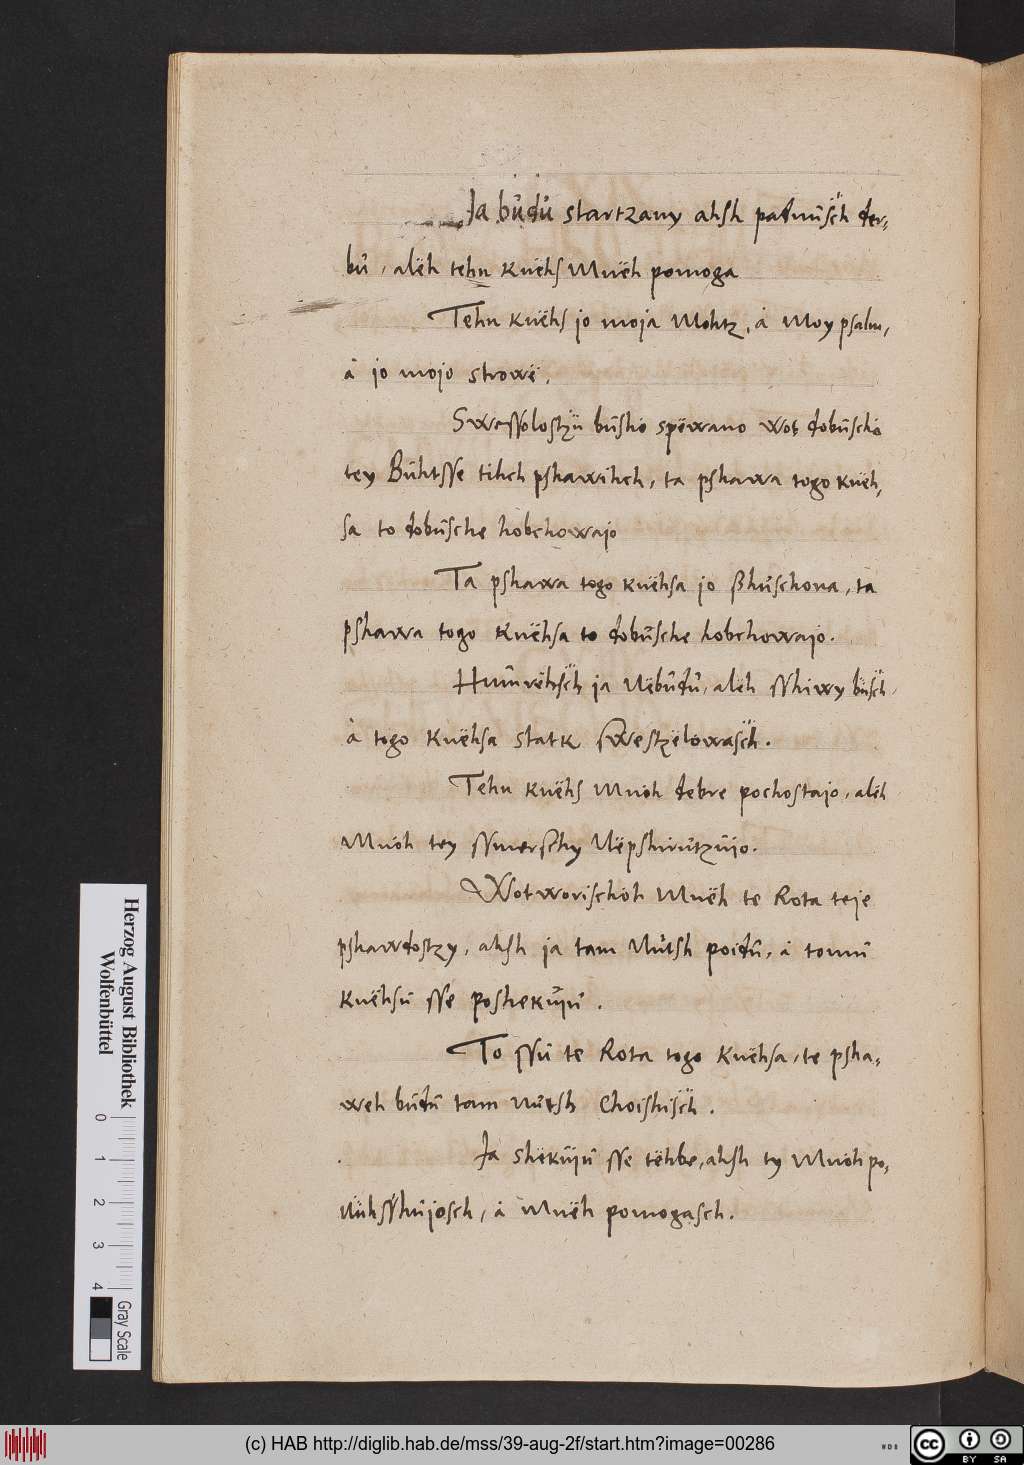 Ja bůdů startzany ahsh padnůsch der-
bů, alëh tehn Knëhs Mnëh pomoga
Tehn Knëhs jo moja Mohtz, à Moy psalm,
à jo mojo strowë.
Swessolostzü bůsho spëwano wot dobůscho
tey Bůhtsse tihch pshawihch, ta pshawa togo Knëh-
sa to dobůsche hobchowajo
Ta pshawa togo Knëhsa jo ßhůschona, ta
pshawa togo Knëhsa to dobůsche hobchowajo.
Humrëhsch ja Nëbůdů, alëh sshiwy bůsch
à togo Knëhsa statk swestzëlowasch.
Tehn Knëhs Mnöh debre pochostajo, alëh
Mnöh tey ssmerschy Nëpshirůtzůjo.
Wotworischöh Mnëh te Rota teje
pshawdostzy, ahsh ja tam Nůtsh poidů, à tomů
Knëhsů sse poshekůjů.
To ssů te Rota togo Knëhsa, te psha-
weh bůdů tam nůtsh Choishisch.
Ja shëkůjů sse tëhbe, ahsh ty Mnöh po-
nůhsshůjosch, à Mnëh pomogasch.
Herzog August Bibliothek
Wolfenbüttel
0 1 2 3 4
Gray Scale
(c) HAB http://diglib.hab.de/mss/39-aug-2f/start.htm?image=00286
WDB
cc BY SA